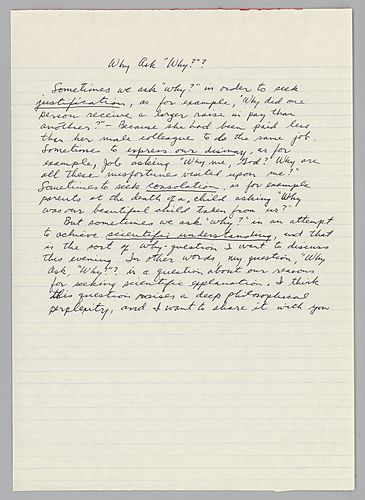 Why Ask "Why?"?
Sometimes we ask "why?" in order to seek
justification, as for example, "Why did one
person receive a larger raise in pay than
another?" - Because she had been paid less
than her male colleague to do the same job.
Sometimes to express our dismay, as for
example, Job asking "Why me, God? Why are
all these misfortunes visited upon me?"
Sometimes to seek consolation, as for example
parents at the death of a child asking "Why
was our beautiful child taken from us?"
But sometimes we ask "why?" in an attempt
to achieve scientific understanding, and that
is the sort of why-question I want to discuss
this evening. In other words, my question, "Why
Ask, "Why?"? is a question about our reasons
for seeking scientific explanations. I think
this question raises a deep philosophical
perplexity, and I want to share it with you.